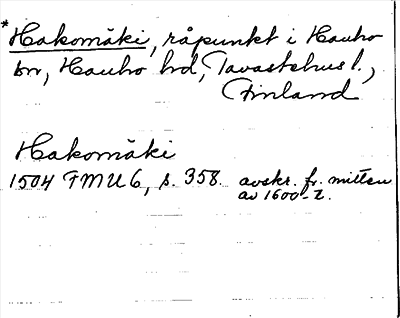 *Hakomäki, råpunkt i Hauho
sn, Hauho hd, Tavastehus l.,
Finland
Hakomäki
1504 FMU 6, s. 358. avskr. fr. mitten
av 1600-t.